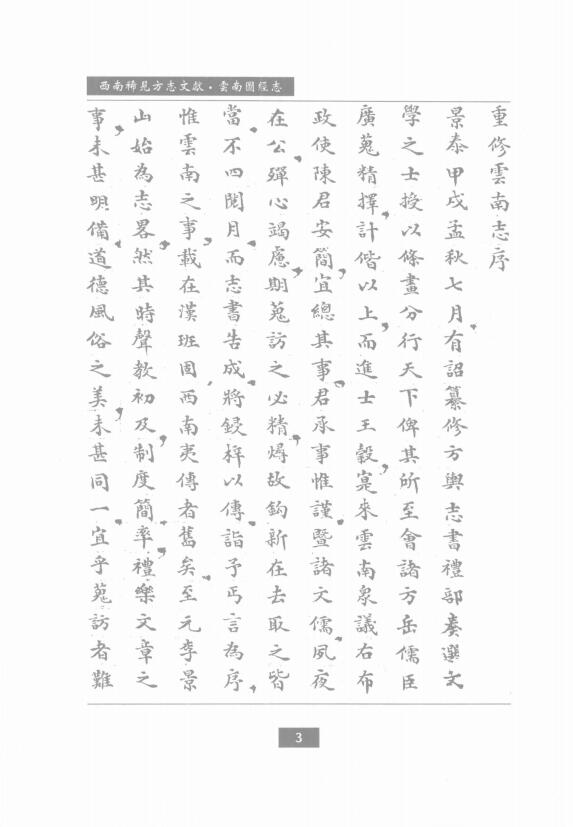 西南稀見方志文獻·雲南圖經志
重修雲南志序
景泰甲戌孟秋七月有詔纂修方輿志書禮部奏選文
學之士授以條畫分行天下俾其所至會諸方岳儒臣
廣蒐精擇計偕以上而進士王榖寔來雲南衆議右布
政使陳君安簡宜總其事君承事惟謹暨諸文儒夙夜
在公殫心竭慮期蒐訪之必精燖故鈎新在去取之皆
當不四閱月而志書告成將鋟梓以傳詣予丐言為序
惟雲南之事載在漢班固西南夷傳者舊矣至元李景
山始為志畧然其時聲教初及制度簡率禮樂文章之
事未甚明備道德風俗之美未甚同一宜乎蒐訪者難
3